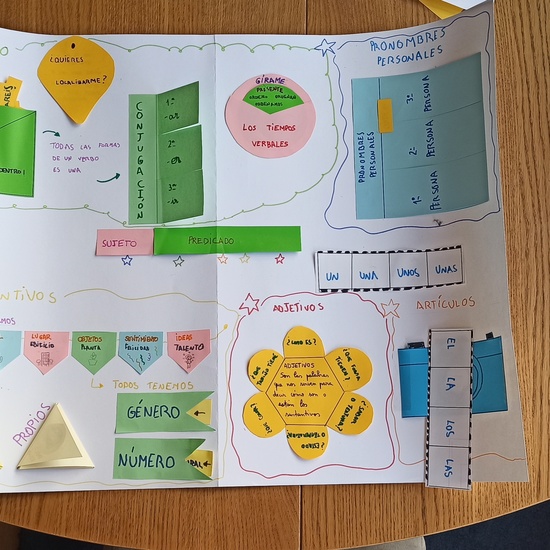 ¿QUIERES
LOCALIZARME?
TODAS LAS FORMAS
DE UN VERBO
ES UNA
CONJUGACIÓN
1ª
-ar
2ª
-er
3ª
-ir
GÍRAME
PRESENTE
LOS TIEMPOS
VERBALES
PRONOMBRES
PERSONALES
PRONOMBRES
PERSONALES
1ª PERSONA
2ª PERSONA
3ª PERSONA
SUJETO
PREDICADO
UN
UNA
UNOS
UNAS
LUGAR
EDIFICIO
OBJETOS
PLANTA
SENTIMIENTO
IDEAS
TALENTO
TODOS TENEMOS
GÉNERO
NÚMERO
PROPIOS
ADJETIVOS
¿CÓMO ES?
ADJETIVOS
Son las palabras
que nos sirven para
decir cómo son o
están los
sustantivos
ARTÍCULOS
EL
LA
LOS
LAS